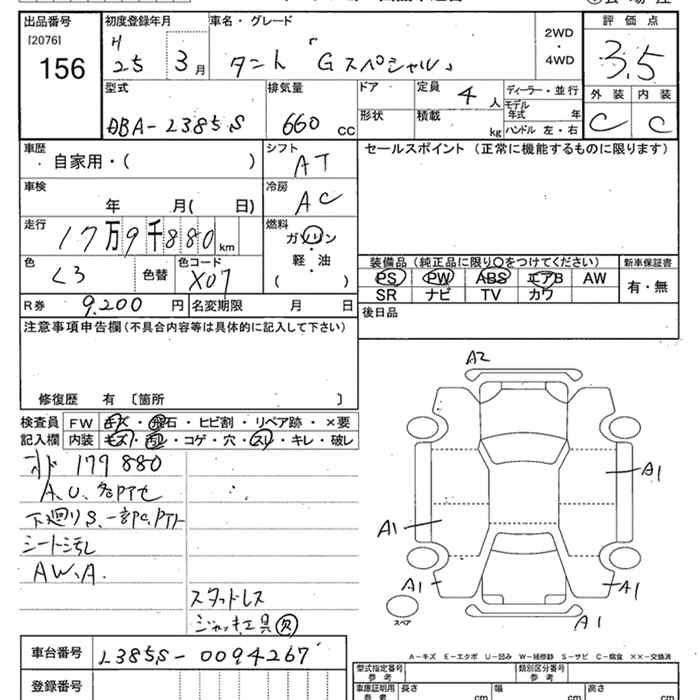 出品番号 初度登録年月 車名・グレード 評価点
[2076] H 2WD
156 25 3月 タント「Gスペシャル」 ・ 3.5
4WD
型式 排気量 ドア 定員 4人 ディーラー・並行 外装 内装
DBA-L385S 660cc 形状 積載 kg モデル年式 年 C C
ハンドル 左・右
車歴 シフト セールスポイント（正常に機能するものに限ります）
・自家用・( ) AT
車検 冷房
年 月( 日) AC
走行 燃料
17万9千880km ガソリン
・
色 色コード 軽・油 装備品（純正品に限り○をつけてください） 新車保証書
L3 色替 X07 ( ) PS PW ABS エアB AW 有・無
SR ナビ TV カワ
R券 9,200円 名変期限 月 日 後日品
注意事項申告欄（不具合内容等は具体的に記入して下さい）
修復歴 有〔箇所 〕
検査員 FW キズ・飛石・ヒビ割・リペア跡・×要
記入欄 内装 キズ・汚レ・コゲ・穴・スレ・キレ・破レ
179880
A、U、
下廻りS、
シート汚レ
AW、A、
スタッドレス
ジャッキ工具欠
A2
A1
A1
A1
A1
A1
スペア
A-キズ E-エクボ U-凹み W-補修跡 S-サビ C-腐食 XX-交換済
車台番号 L385S-0094267
登録番号
型式指定番号 参考 類別区分番号 参考
車庫証明用 参考 長さ cm 幅 cm 高さ cm